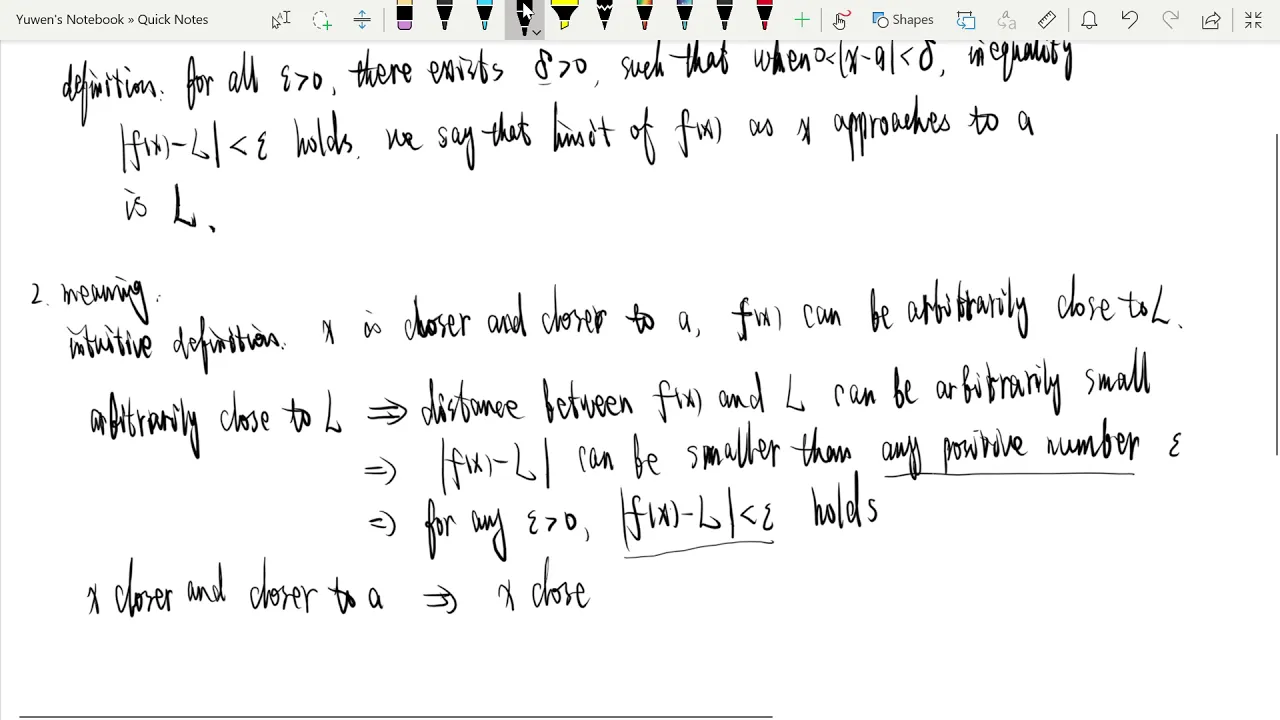 Yuwen's Notebook » Quick Notes
Shapes
definition. for all ε>0, there exists δ>0, such that when 0<|x-a|<δ, inequality
|f(x)-L|<ε holds. we say that limit of f(x) as x approaches to a
is L.
2. meaning.
intuitive definition. x is closer and closer to a, f(x) can be arbitrarily close to L.
arbitrarily close to L ⇒ distance between f(x) and L can be arbitrarily small
⇒ |f(x)-L| can be smaller than any positive number ε
⇒ for any ε>0, |f(x)-L|<ε holds
x closer and closer to a ⇒ x close